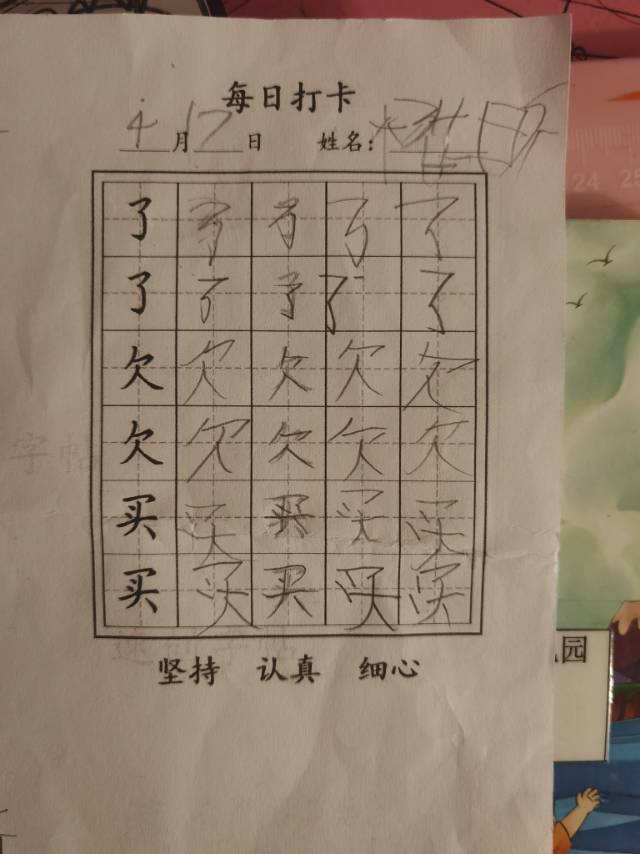 每日打卡
4月17日 姓名:
了了了了了
了了了了了
欠欠欠欠欠
欠欠欠欠欠
买买买买买
买买买买买
坚持 认真 细心
字帖
24 25
园